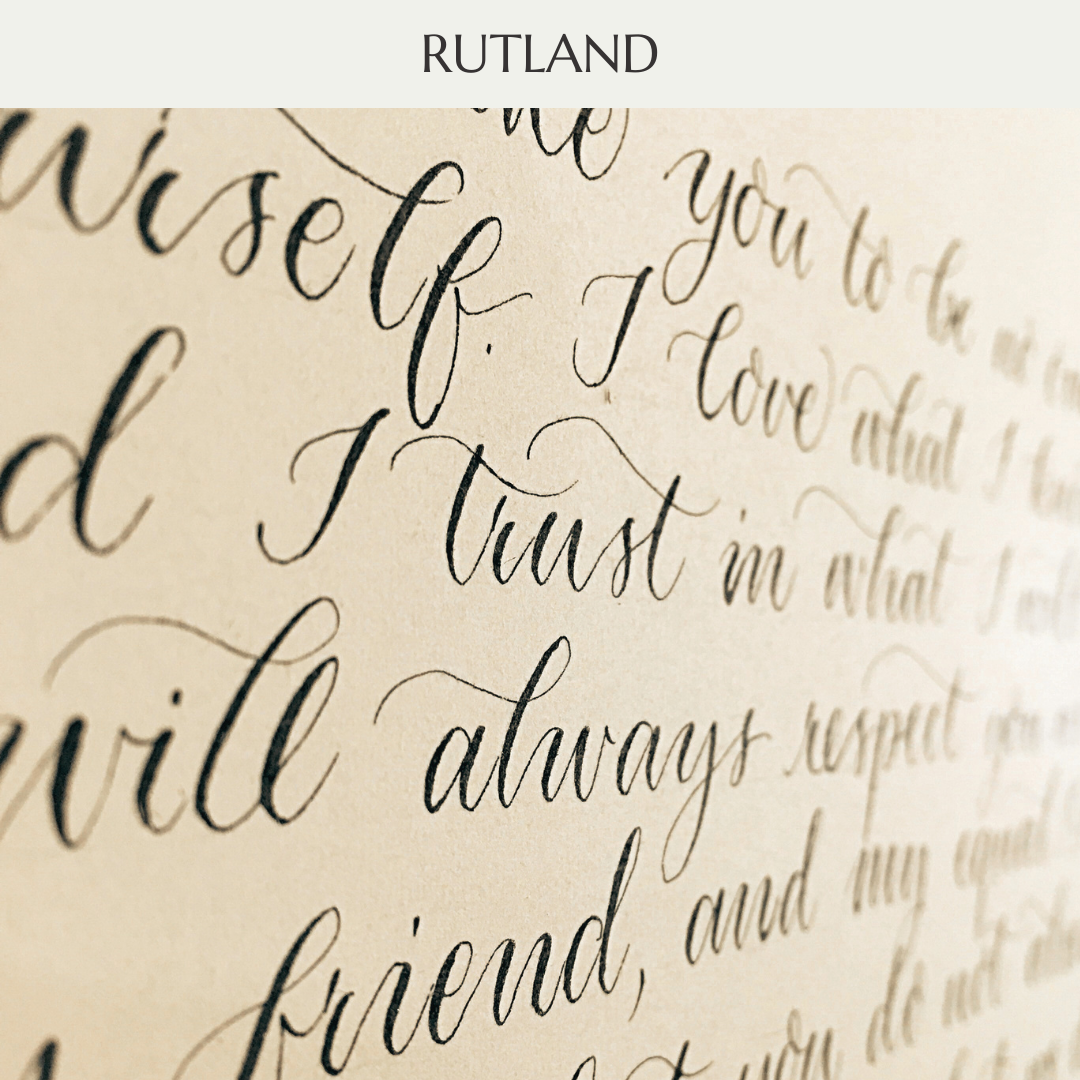 RUTLAND
you to be
urself. I love what I
d I trust in what I
will always respect you
friend, and my equal
you do not